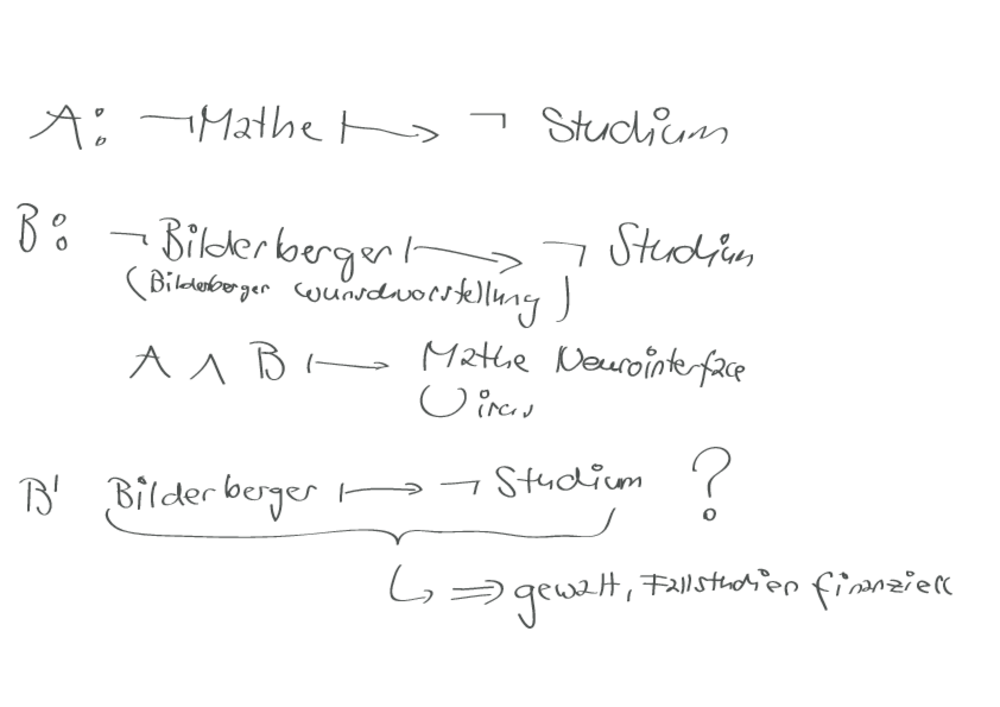 A: ¬Mathe ↦ ¬ Studium
B: ¬Bilderberger ↦ ¬ Studium
(Bilderberger wunschvorstellung)
A ∧ B ↦ Mathe Neurointerface
Virus
B' Bilderberger ↦ ¬ Studium ?
↳ ⇒ gewalt, Fallstudien finanziell